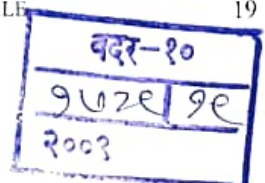 LE 19
वदर-१०
१७२९ | १९
२००३